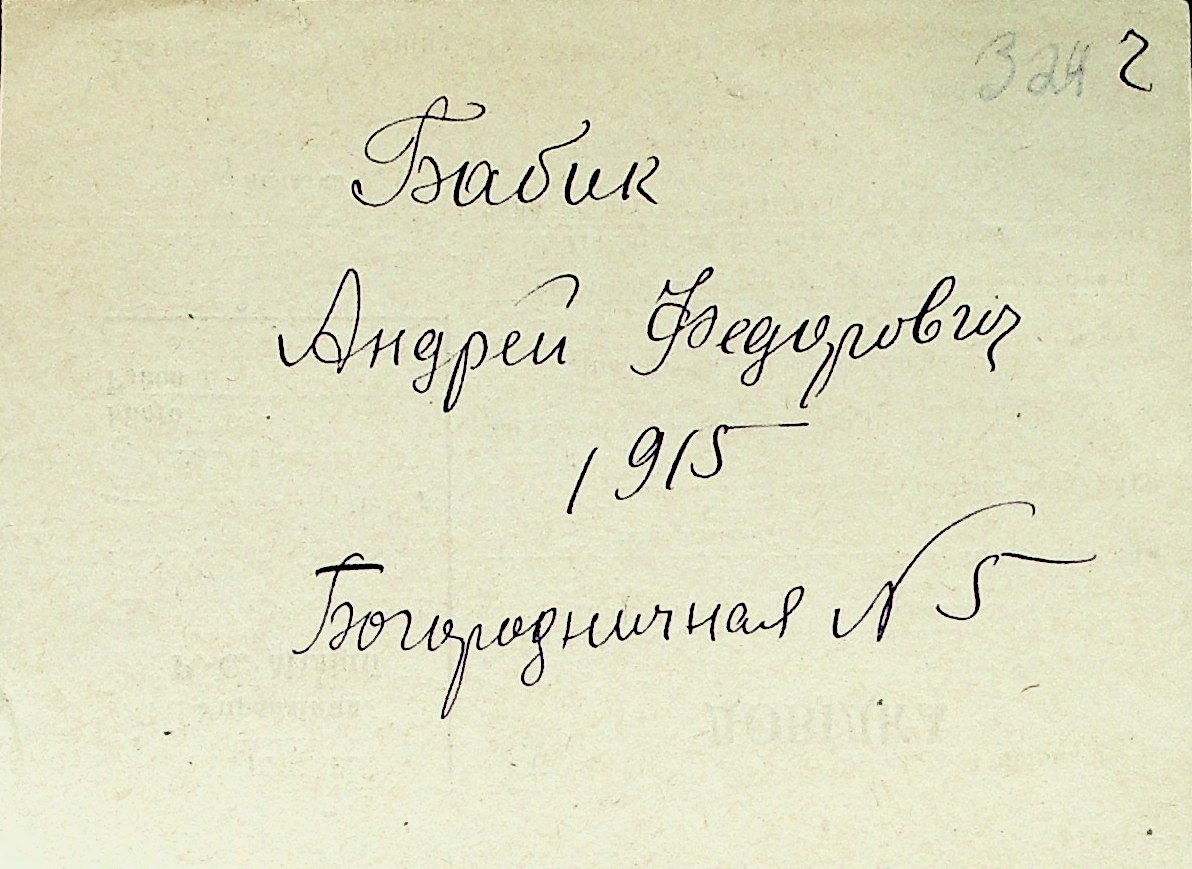 324 2
Бабик
Андрей Федорович
1915
Богородничная N 5